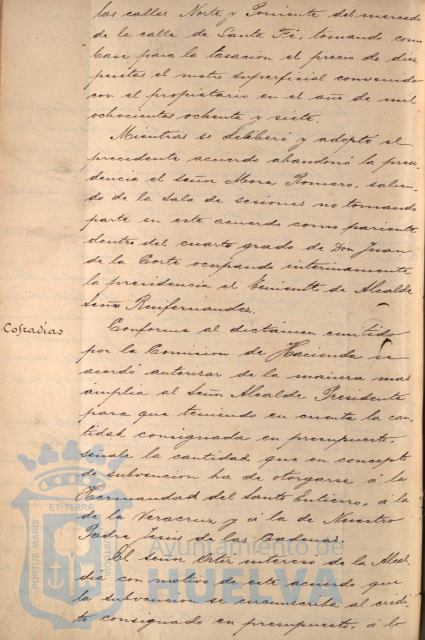 las calles Norte y Poniente del mercado
de la calle de Santa Fé, tomando como
base para la tasacion el precio de diez
pesetas el metro superficial convenido
con el propietario en el año de mil
ochocientos ochenta y siete.
Mientras se deliberó y adoptó el
precedente acuerdo abandonó la presi
dencia el señor Mora Romero, salien
do de la sala de sesiones no tomando
parte en este acuerdo como pariente
dentro del cuarto grado de Don Juan
de la Corte ocupando interinamente
la presidencia el Teniente de Alcalde
Señor Ruifernandez.
Cofradias
Conforme al dictámen emitido
por la Comision de Hacienda se
acordó autorizar de la manera mas
amplia al Señor Alcalde Presidente
para que teniendo en cuenta la can
tidad consignada en presupuesto,
señale la cantidad que en concepto
de subvencion ha de otorgarse á la
Hermandad del Santo Entierro, á la
de la Veracruz y á la de Nuestro
Padre Jesus de las Cadenas.
El Señor interesó de la Alcal
dia con motivo de este acuerdo que
la subvencion se circunscriba al crédi
to consignado en presupuesto, á lo
PORTUS MARIS
ET TERRÆ
CUSTODIA
Ayuntamiento de
HUELVA